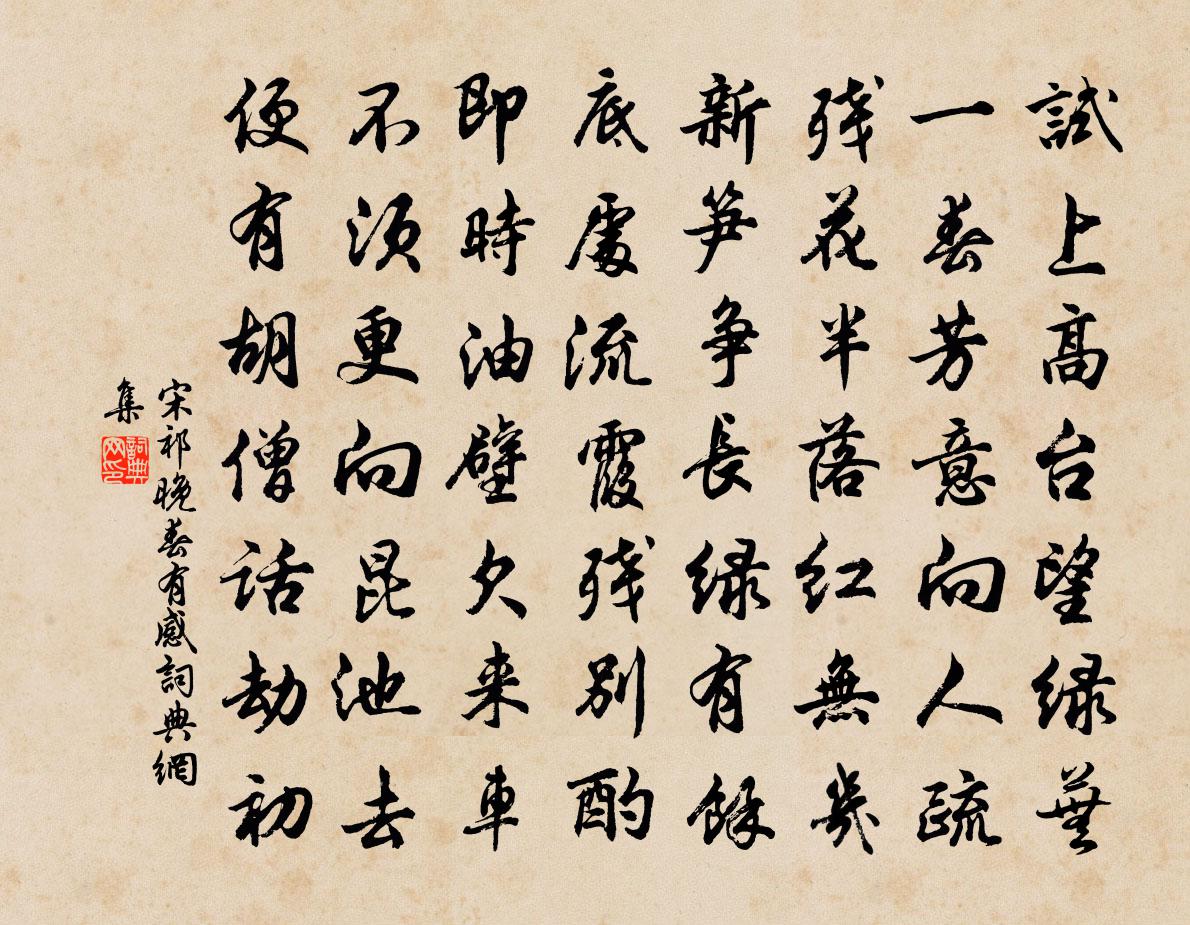 試上高台望綠蕪
一春芳意向人疏
殘花半落紅無幾
新笋爭長綠有餘
底處流霞殘別酌
即時油壁欠来車
不須更向昆池去
便有胡僧話劫初
宋祁晚春有感詞典網
集
詞典網印